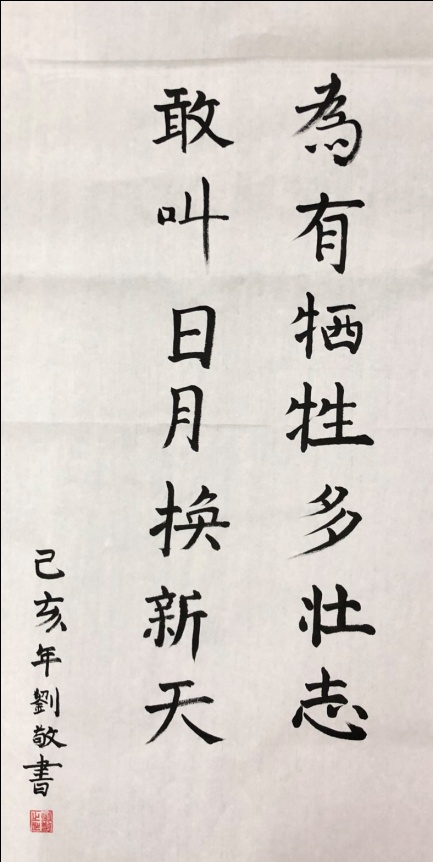 為有牺牲多壮志
敢叫日月换新天
己亥年劉敬書